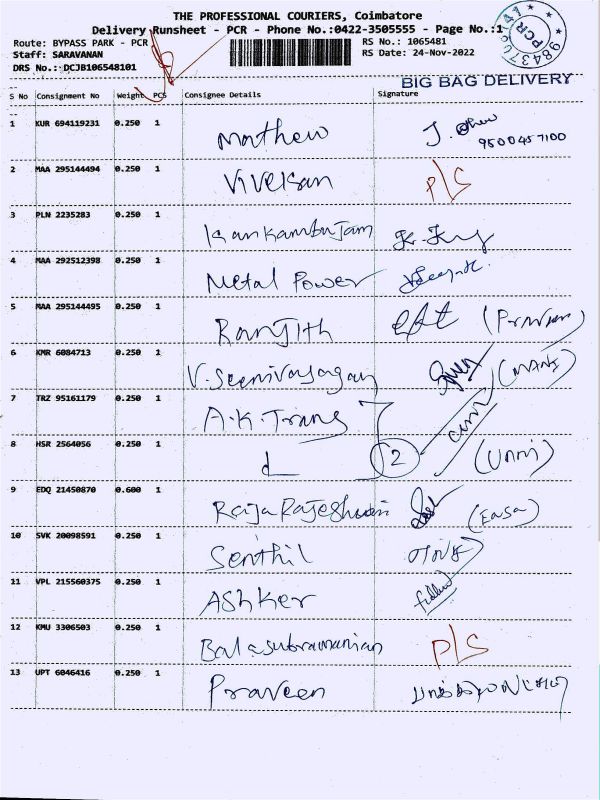 THE PROFESSIONAL COURIERS, Coimbatore
Delivery Runsheet - PCR - Phone No.:0422-3505555 - Page No.:1
Route: BYPASS PARK - PCR RS No.: 1065481
Staff: SARAVANAN RS Date: 24-Nov-2022
DRS No.: DCJB106548101
PCR
BIG BAG DELIVERY
S No Consignment No Weight PCS Consignee Details Signature
1 KUR 694119231 0.250 1 Mathew J.
9500457100
2 MAA 295144494 0.250 1 Vivekan P/S
3 PLN 2235283 0.250 1
4 MAA 292512398 0.250 1 Metal Power
5 MAA 295144495 0.250 1 Ranjith (Praveen)
6 KMR 6084713 0.250 1 V. Seenivasagan (MANI)
7 TRZ 95161179 0.250 1 A.K.Trans
8 HSR 2564056 0.250 1 2 (Unni)
9 EDQ 21450870 0.600 1 RajaRajeshwari
10 SVK 20098591 0.250 1 Senthil
11 VPL 215560375 0.250 1 AShker
12 KMU 3306503 0.250 1 Balasubramanian P/S
13 UPT 6046416 0.250 1 Praveen